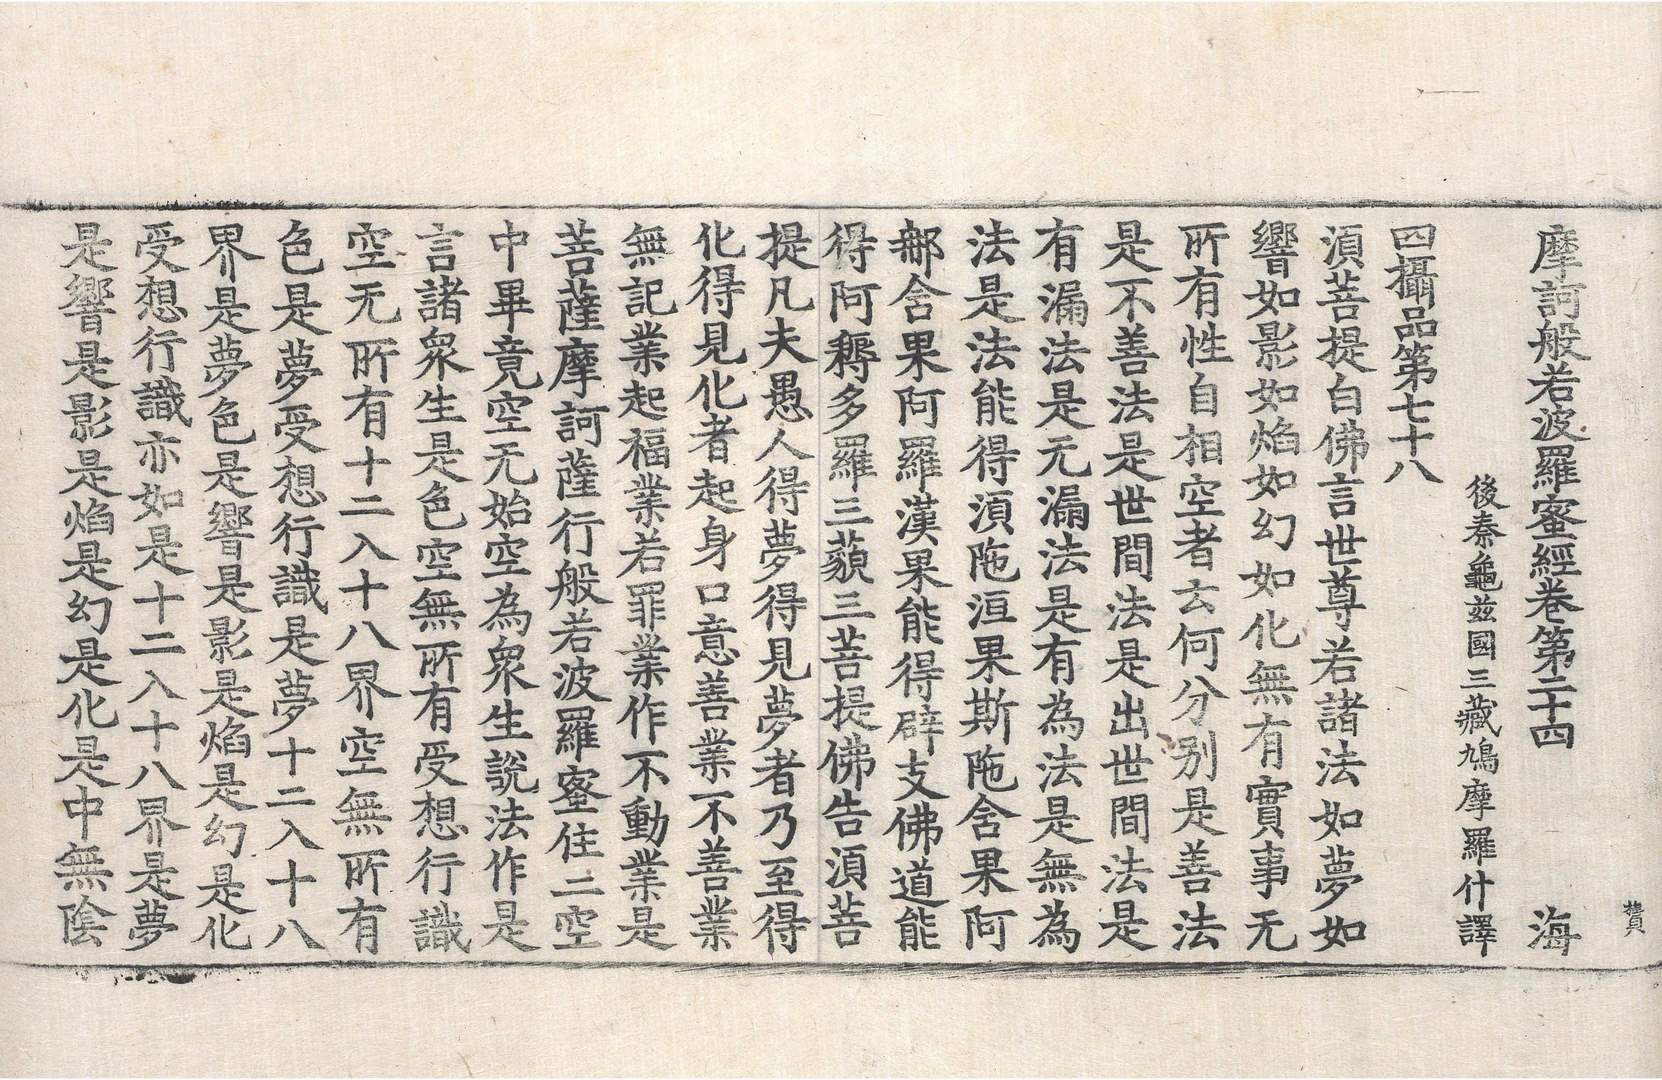 摩訶般若波羅蜜經卷第二十四 海
後秦龜茲國三藏鳩摩羅什譯
四攝品第七十八
湏菩提白佛言世尊若諸法如夢如
響如影如焰如幻如化無有實事无
所有性自相空者云何分別是善法
是不善法是世間法是出世間法是
有漏法是无漏法是有為法是無為
法是法能得湏陁洹果斯陁含果阿
那含果阿羅漢果能得辟支佛道能
得阿耨多羅三藐三菩提佛告湏菩
提凡夫愚人得夢得見夢者乃至得
化得見化者起身口意善業不善業
無記業起福業若罪業作不動業是
菩薩摩訶薩行般若波羅蜜住二空
中畢竟空无始空為衆生說法作是
言諸衆生是色空無所有受想行識
空无所有十二入十八界空無所有
色是夢受想行識是夢十二入十八
界是夢色是響是影是焰是幻是化
受想行識亦如是十二入十八界是夢
是響是影是焰是幻是化是中無陰